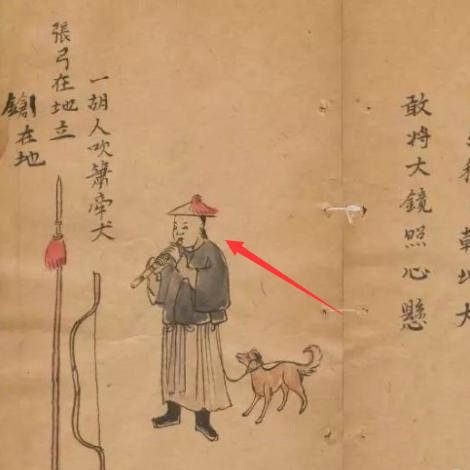 敢将大鏡照心懸
一胡人吹簫牽犬
張弓在地立
鎗在地